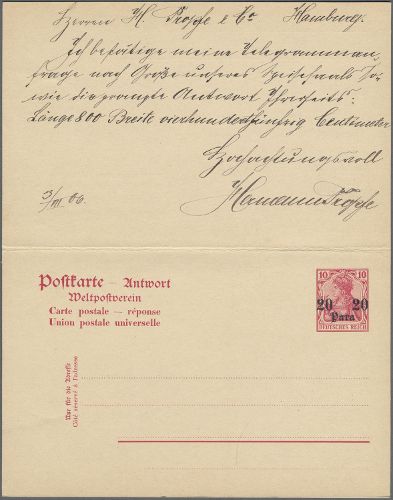 Herren H. Poppe & Co Hamburg.
Ich bestätige meine Telegramman-
frage nach Größe unseres Speisesaals so-
wie die prompte Antwort Ihrerseits:
Länge 800 Breite vierhundertfünfzig Centimeter
Hochachtungsvoll
Hermann Poppe
3/VI 06.
Postkarte – Antwort
Weltpostverein
Carte postale — réponse
Union postale universelle
10 10
20 20
Para
DEUTSCHES REICH
Nur für die Adresse
Côté réservé à l'adresse